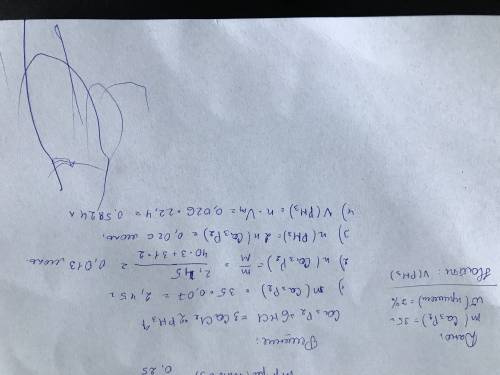 Дано:
m(Ca₃P₂) = 35г
ω(примеси) = 7%
Найти: V(PH₃)
Решение:
Ca₃P₂ + 6HCl = 3CaCl₂ + 2PH₃↑
1) m(Ca₃P₂) = 35 · 0,07 = 2,45г
2) n(Ca₃P₂) = m/M = 2,45/(40·3+31·2) = 0,013 моль
3) n(PH₃) = 2n(Ca₃P₂) = 0,026 моль
4) V(PH₃) = n · Vm = 0,026 · 22,4 = 0,5824 л
0,25